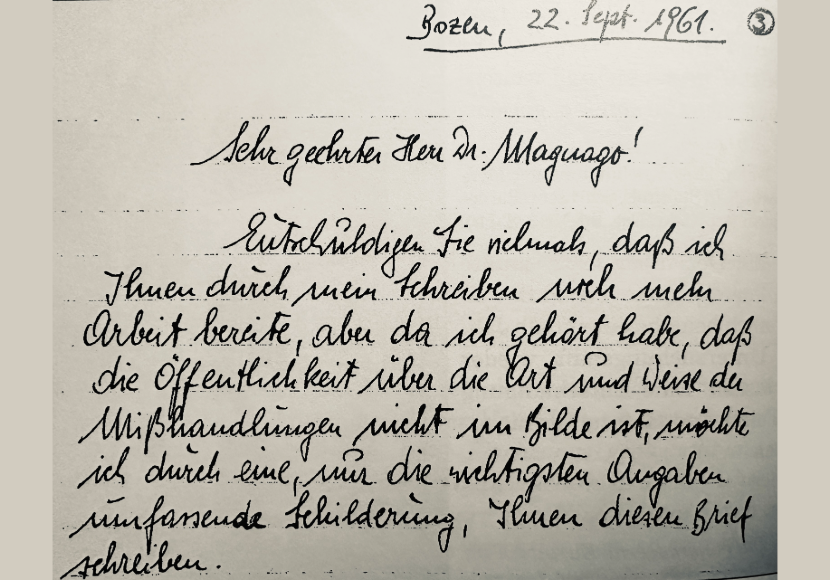 Bozen, 22. Sept. 1961. ③
Sehr geehrter Herr Dr. Magnago!
Entschuldigen Sie vielmals, daß ich
Ihnen durch mein Schreiben noch mehr
Arbeit bereite, aber da ich gehört habe, daß
die Öffentlichkeit über die Art und Weise der
Mißhandlungen nicht im Bilde ist, möchte
ich durch eine, nur die wichtigsten Angaben
umfassende Schilderung, Ihnen diesen Brief
schreiben.